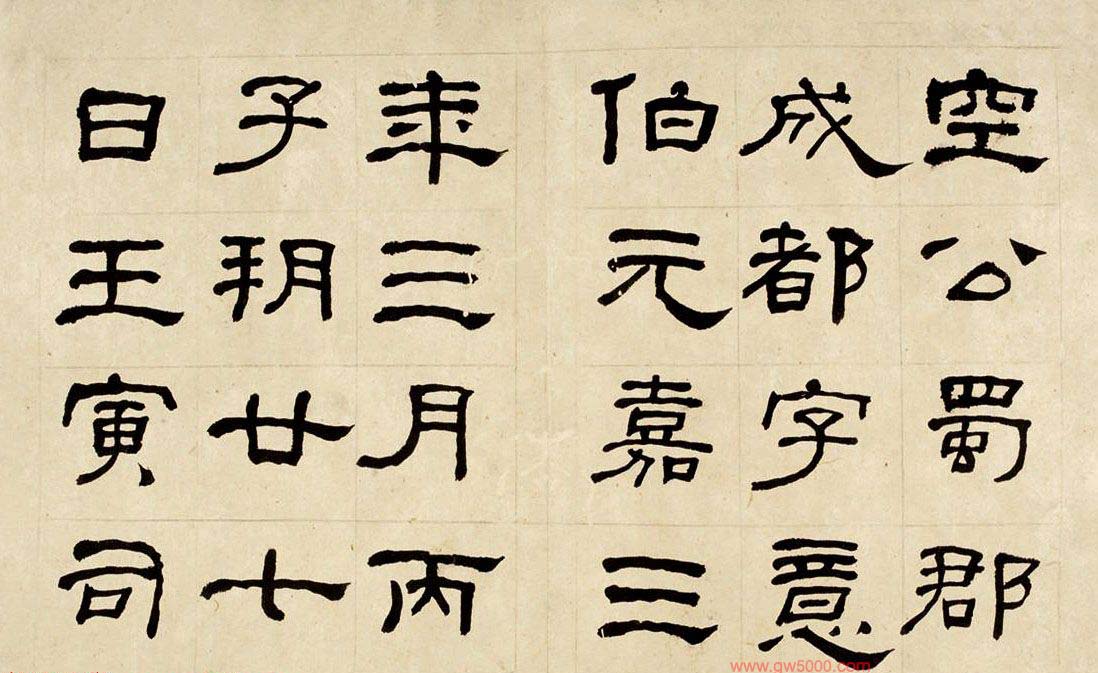 空公蜀郡
成都字意
伯元嘉三
年三月丙
子朔廿七
日壬寅司
www.gw5000.com